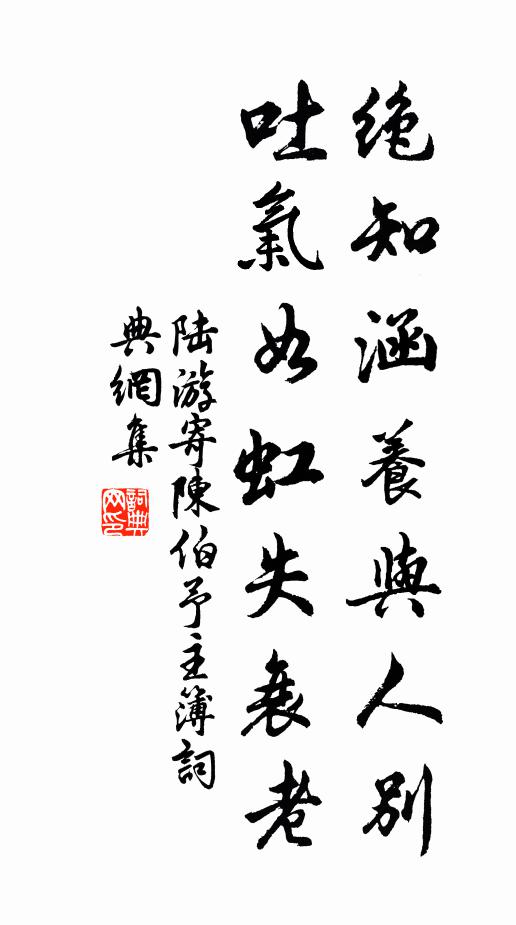 绝知涵養與人別
吐氣如虹失衰老
陆游寄陳伯予主簿詞
典網集
詞典网印